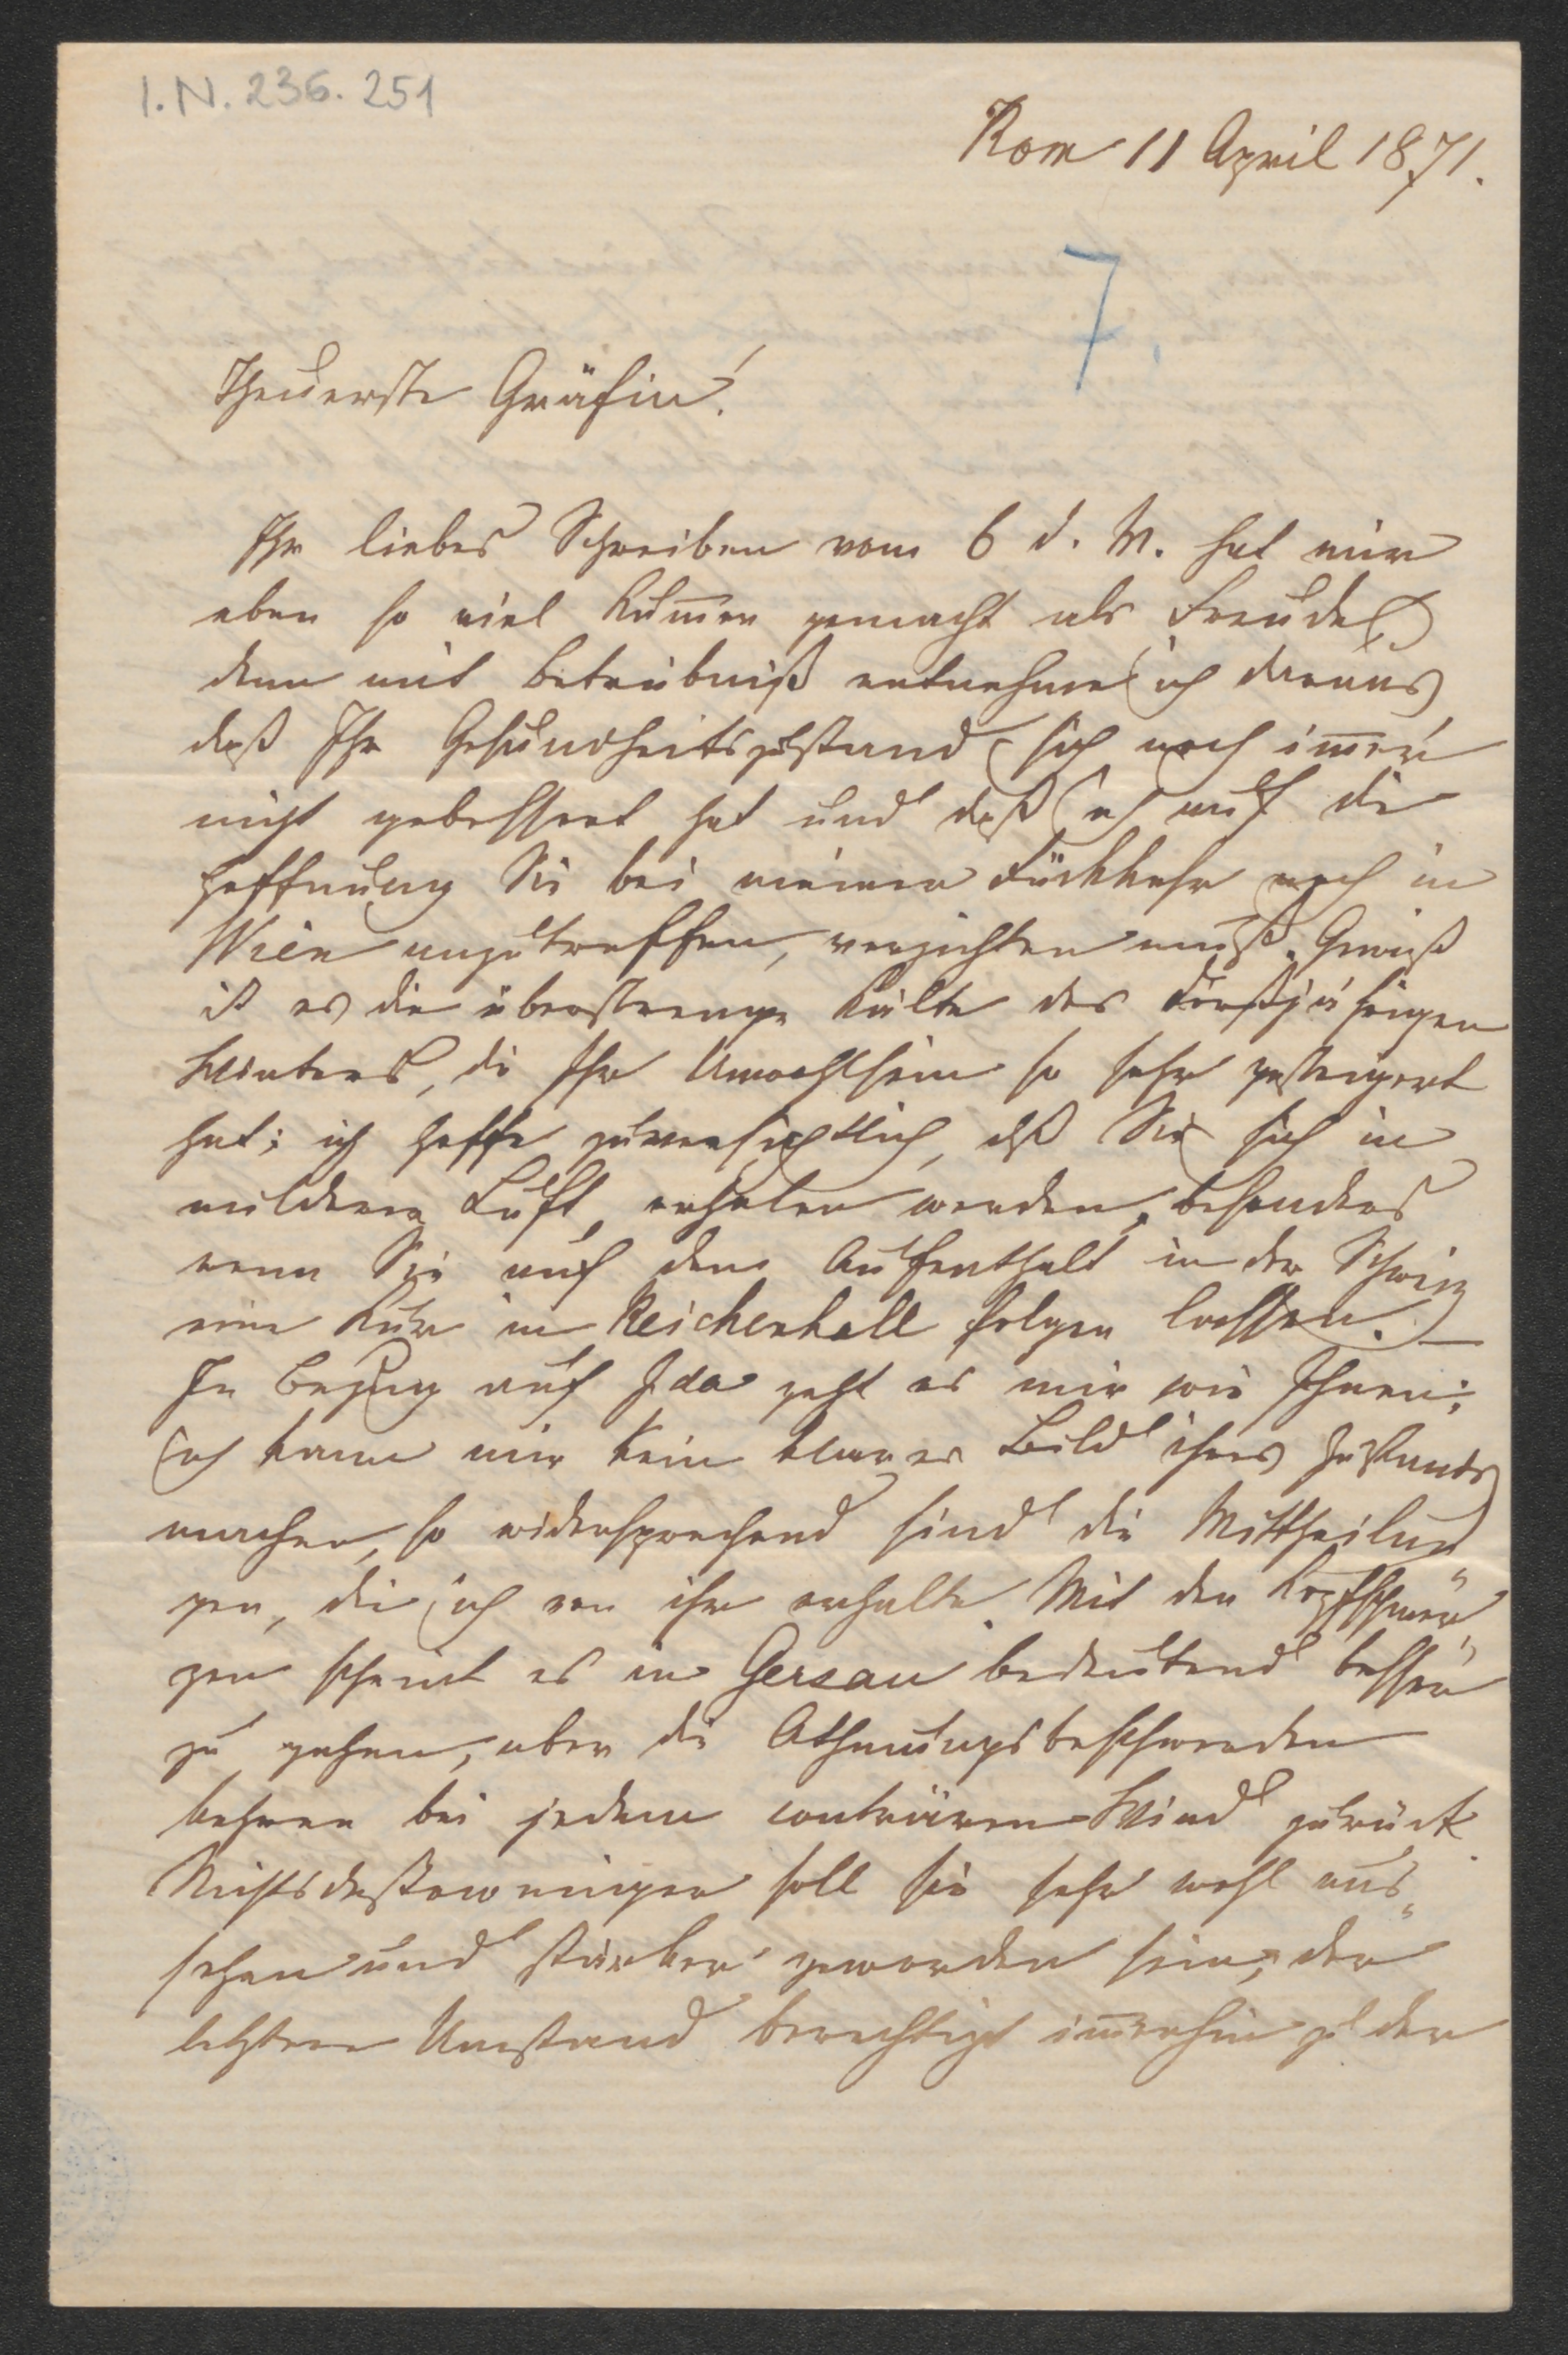 I.N. 236.251
Rom 11 April 1871.
7.
Theuerste Gräfin!
Ihr liebes Schreiben vom 6 d. M. hat mir
eben so viel Kum̄er gemacht als Freude,
denn mit Betrübniß entnehme ich daraus
daß Ihr Gesundheitszustand sich noch im̄er
nicht gebessert hat und daß ich auf die
Hoffnung Sie bei meiner Rückkehr noch in
Wien anzutreffen, verzichten muß. Gewiß
ist es die überstrenge Kälte des dießjährigen
Winters, die Ihr Unwohlsein so sehr gesteigert
hat; ich hoffe zuversichtlich, dß Sie sich in
milderer Luft erholen werden, besonders
wenn Sie auf den Aufenthalt in der Schweiz
eine Kur in Reichenhall folgen lassen. –
In Bezug auf Ida geht es mir wie Ihnen;
ich kann mir kein klares Bild ihres Zustands
machen, so widersprechend sind die Mittheilun
gen, die ich von ihr erhalte. Mit den Kopfschmer„
zen scheint es in Gersau bedeutend besser
zu gehen, aber die Athmungsbeschwerden
kehren bei jedem conträren Wind zurück.
Nichtsdestoweniger soll sie sehr wohl aus„
sehen und stärker geworden sein; der
letztere Umstand berechtigt im̄erhin zu der